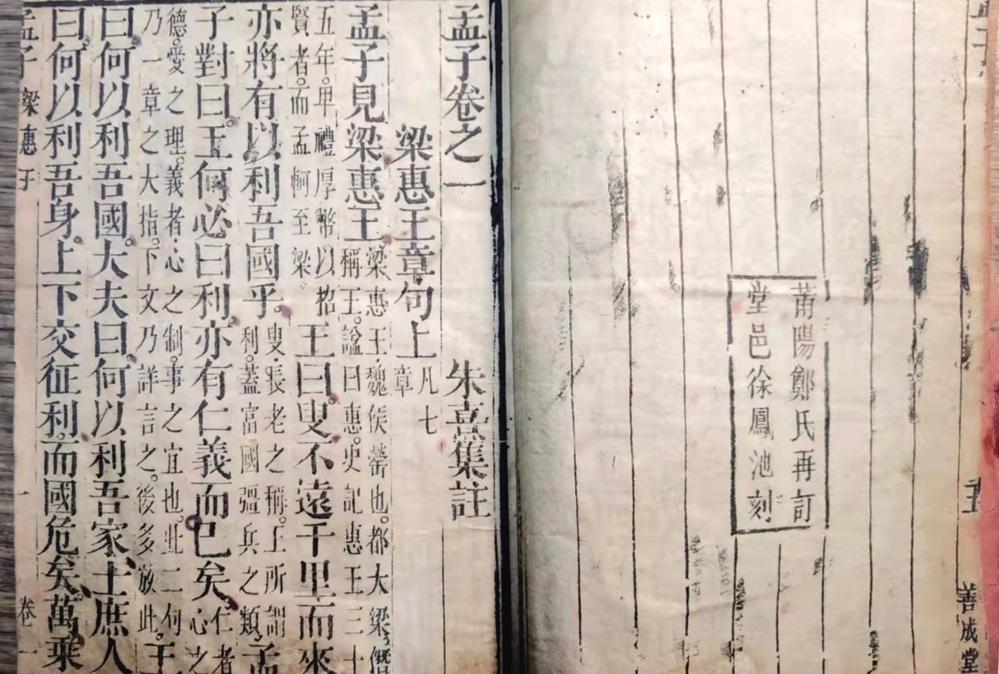 善成堂
莆陽鄭氏再訂
堂邑徐鳳池刻
孟子卷之一 朱熹集註
梁惠王章句上 凡七章
孟子見梁惠王。梁惠王魏侯罃也。都大梁。僭稱王。諡曰惠。史記惠王三十
五年。卑禮厚幣以招賢者。而孟軻至梁。王曰。叟不遠千里而來
亦將有以利吾國乎。叟長老之稱。上所謂利。蓋富國彊兵之類。孟
子對曰。王何必曰利。亦有仁義而已矣。仁者心之
德。愛之理。義者。心之制。事之宜也。此二句乃一章之大指。下文乃詳言之。後多放此。王
曰。何以利吾國。大夫曰。何以利吾家。士庶人
曰。何以利吾身。上下交征利。而國危矣。萬乘
孟子 梁惠 一 卷一